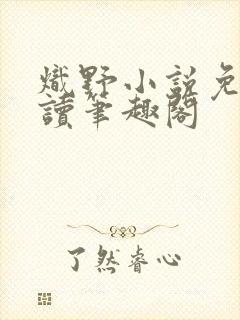 熾野小説免
讀筆趣閣
了然睿心